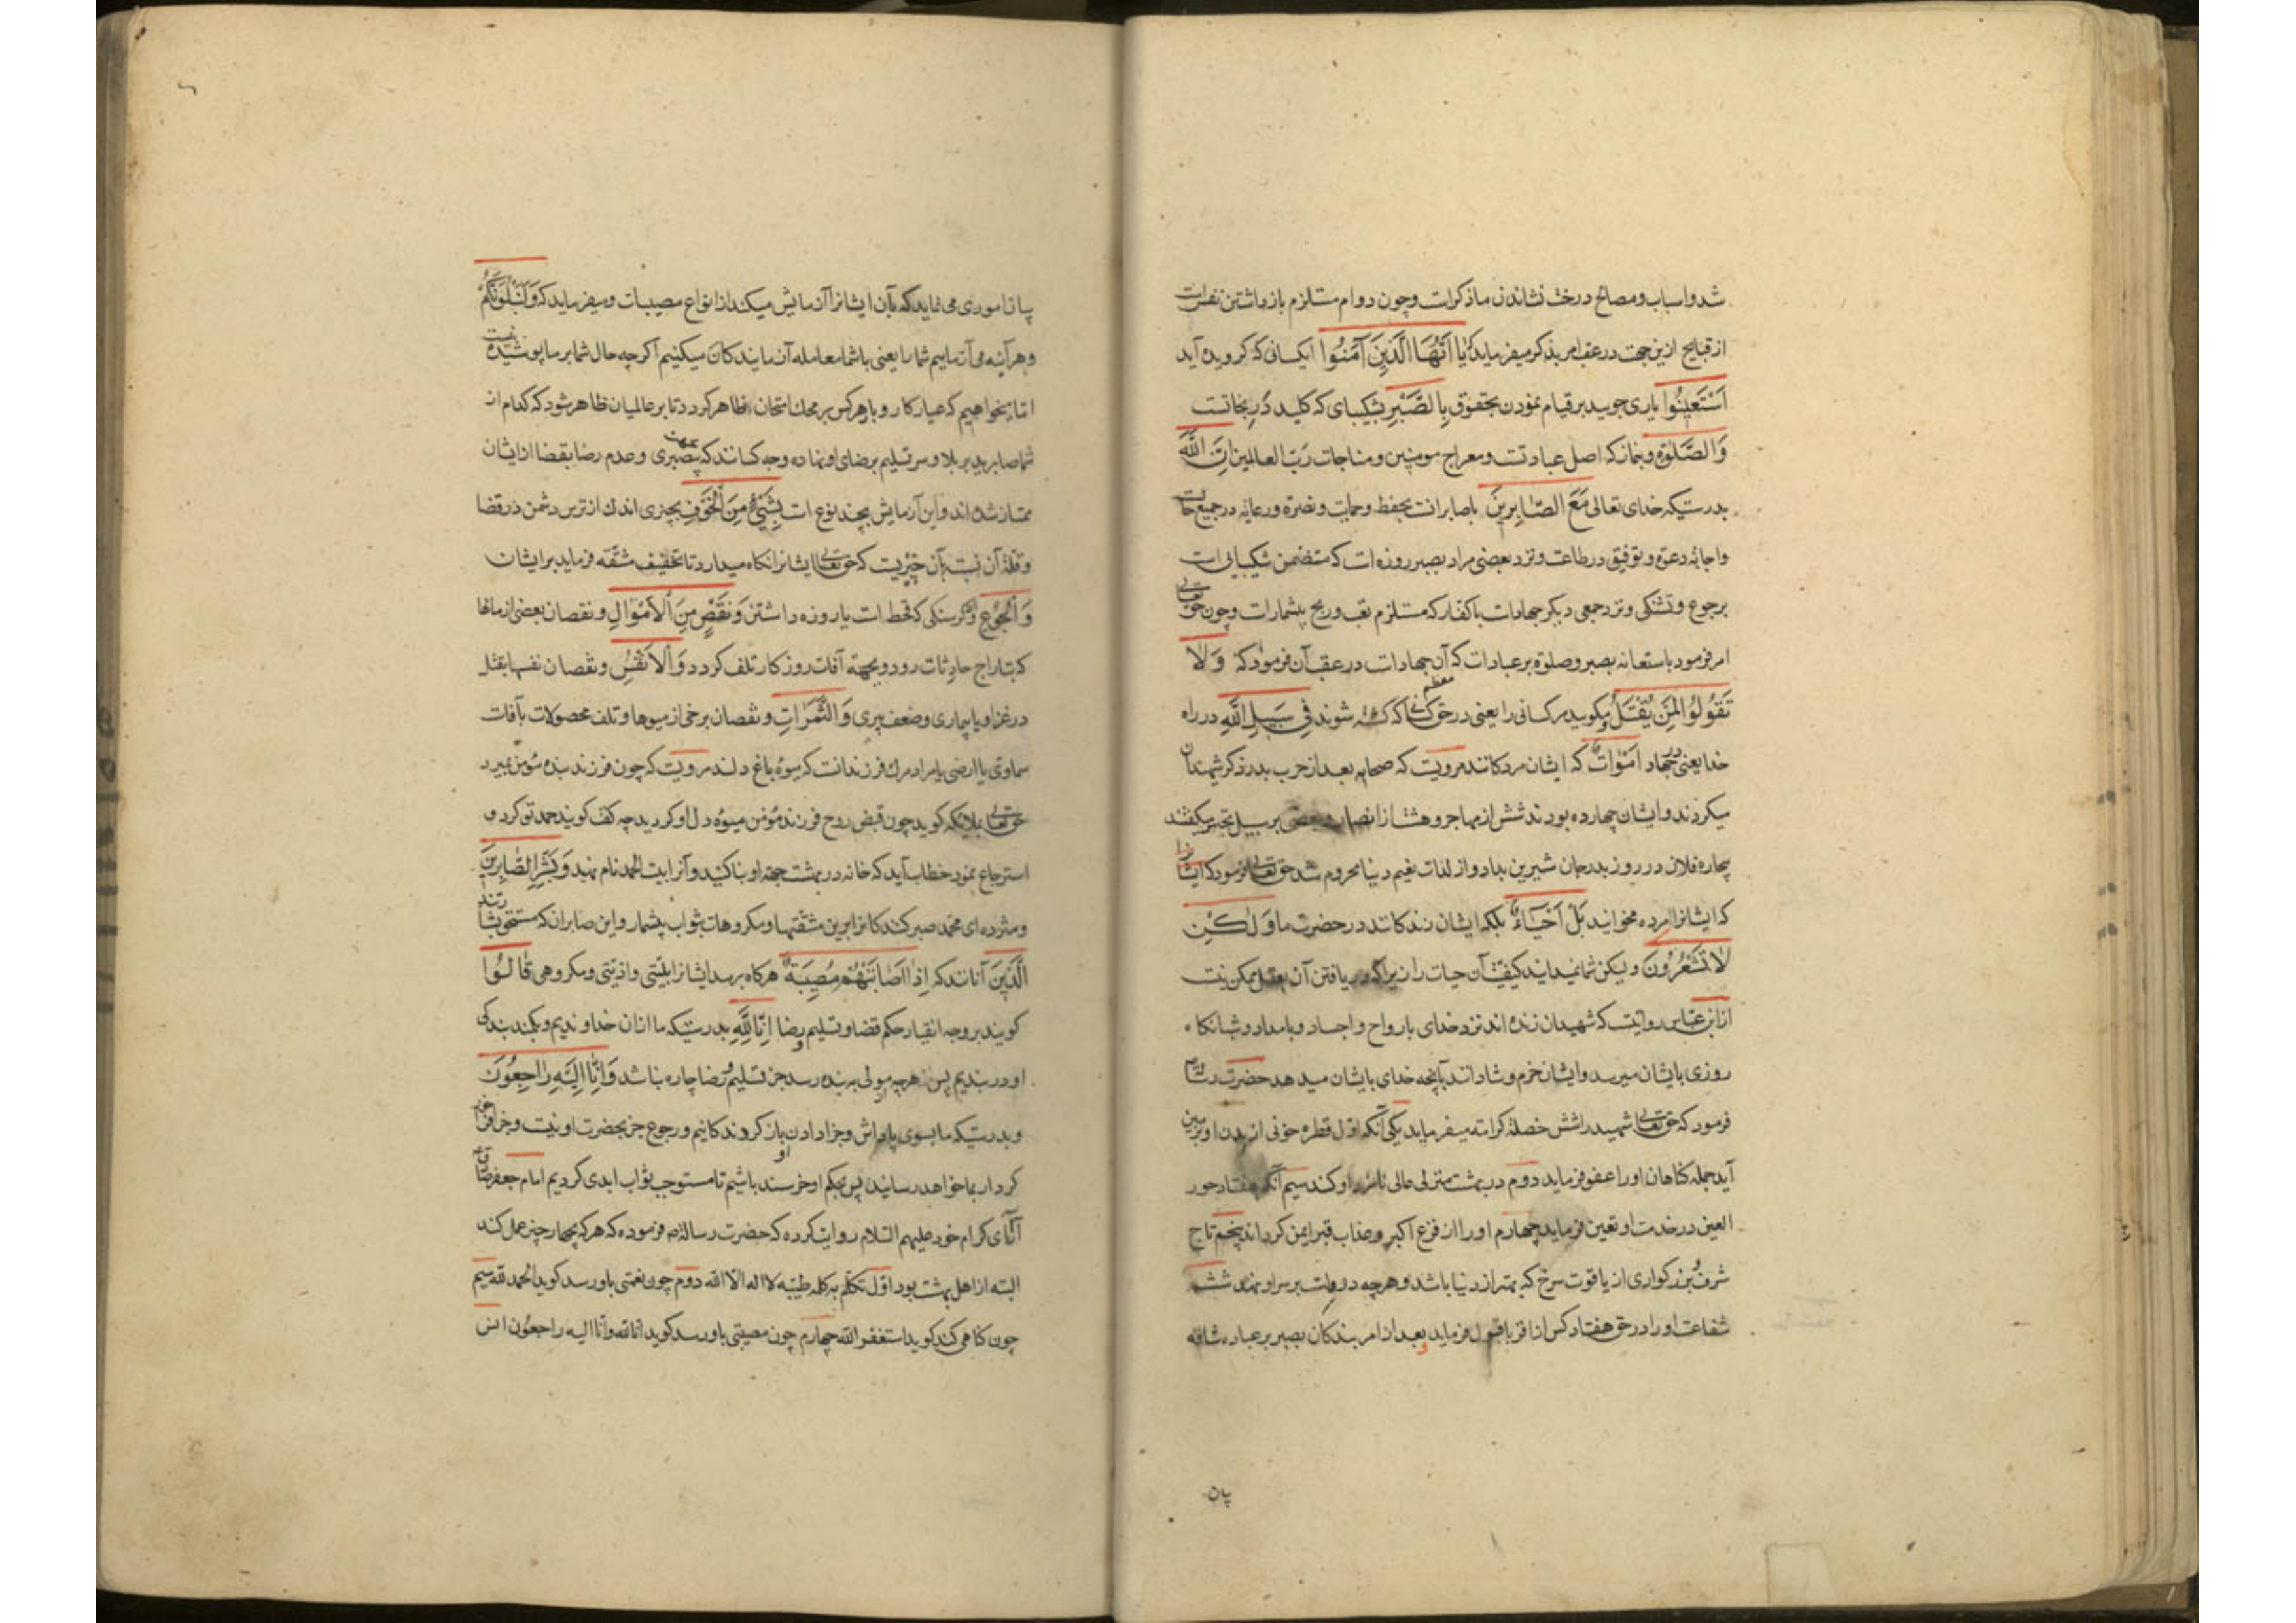 شد و اسباب و مصالح درخت نشاندن ما ذکرات و چون دوام مستلزم بازداشتن نفس است
از قبایح ازین جهت در عقب امر بذکر میفرماید که یَا اَیُّهَا الَّذِینَ آمَنُوا ایکسانی که کرویده آید
اَسْتَعِینُوا یاری جویید بر قیام نمودن بحقوق بِالصَّبْرِ بشکیبای که کلید در نجاتست
وَالصَّلٰوةِ و بنماز که اصل عبادتست و معراج مومنین و مناجات رب العالمین اِنَّ اللّٰهَ
بدرستیکه خدای تعالی مَعَ الصَّابِرِینَ با صابرانست بحفظ و حمایت و نصرة و رعایه در جمیع حالات
و اجابه دعوة و توفیق در طاعت و نزد بعضی مراد بصبر روزه است که متضمن شکیبائی است
بر جوع و تشنکی و نزد جمعی دیکر جهادست با کفار که مستلزم تعب و رنج بیشمارست و چون حق تعالی
امر فرمود باستعانه بصبر و صلوة بر عبادات که آن جهادات در عقب آن فرمود که وَلَا
تَقُولُوا لِمَنْ یُقْتَلُ و مکویید مر کسانی را یعنی در حق کسانی که کشته شوند فِی سَبِیلِ اللّٰهِ در راه
خدا یعنی در جهاد اَمْوَاتٌ که ایشان مردکانند مرویست که صحابه بعد از حرب بدر ذکر شهیدان
میکردند و ایشان چهارده بودند شش از مهاجر و هشت از انصار و بعضی بر سبیل تحسر میکفتند
بیچاره فلان در روز بدر جان شیرین بداد و از لذات نعیم دنیا محروم شد حق تعالی فرمود که ایشانرا
که ایشانرا مرده مخوانید بَلْ اَحْیَاءٌ بلکه ایشان زندکانند در حضرت ما وَلٰکِنْ
لَا تَشْعُرُونَ و لیکن شما نمیدانید کیفیت آن حیات را زیرا که دریافتن آن بعقل ممکن نیست
از ابن عباس روایتست که شهیدان زنده اند نزد خدای بارواح و اجساد و بامداد و شبانکاه
روزی بایشان میرسد و ایشان خرم و شادانند بآنچه خدای بایشان میدهد حضرت رسالت
فرمود که حق تعالی شهید را شش خصلة کرامته میفرماید یکی آنکه اول قطره خونی از بدن او بزمین
آید جمله کناهان او را عفو فرماید دوم در بهشت منزلی عالی نامزد او کند سیم آنکه هفتاد حور
العین در خدمت او تعیین فرماید چهارم او را از فزع اکبر و عذاب قبر ایمن کرداند پنجم تاج
شرف و بزرکواری از یاقوت سرخ که بهتر از دنیا باشد و هرچه دروست بر سر او نهد ششم
شفاعت او را در حق هفتاد کس از اقربا قبول فرماید و بعد از امر بندکان بصبر بر عباده شاقه
بیان
بیان اموری می نماید که بآن ایشانرا آزمایش میکند از انواع مصیبات و میفرماید که وَلَنَبْلُوَنَّکُمْ
و هر آینه می آزماییم شما را یعنی با شما معامله آزمایندکان میکنیم اکرچه حال شما بر ما پوشیده نیست
اما میخواهیم که عیار کار و بار هرکس بر محک امتحان ظاهر کردد تا بر عالمیان ظاهر شود که کدام از
شما صابرید بر بلا و سر تسلیم برضای او نهاده و چه کسانند که بجهت بیصبری و عدم رضا بقضا از ایشان
ممتاز شده اند و این آزمایش بچند نوع است بِشَیْءٍ مِنَ الْخَوْفِ بچیزی اندک از ترس دشمن در قضا
و قلة آن نسبت بآن چیزیست که حق تعالی ایشانرا نکاه میدارد تا تخفیف مشقه فرماید بر ایشان
وَالْجُوعِ و کرسنکی که قحط است یا روزه داشتن وَنَقْصٍ مِنَ الْاَمْوَالِ و نقصان بعضی از مالها
که بتاراج حادثات رود و بجهته آفات روزکار تلف کردد وَالْاَنْفُسِ و نقصان نفسها بقتل
در غزا و یا بیماری و ضعف پیری وَالثَّمَرَاتِ و نقصان برخی از میوها و تلف محصولات بآفات
سماوی یا ارضی یا مراد مرک فرزندانست که میوه باغ دلند مرویست که چون فرزند بنده مؤمن بمیرد
حق تعالی بملائکه کوید چون قبض روح فرزند مؤمن میوه دل او کردید چه کفت کویند حمد تو کرد و
استرجاع نمود خطاب آید که خانه در بهشت جهة او بنا کنید و آنرا بیت الحمد نام نهید وَبَشِّرِ الصَّابِرِینَ
و مژده ده ای محمد صبر کنندکانرا برین مشقتها و مکروهات بثواب بیشمار و این صابران که مستحق بشارتند
الَّذِینَ آنانند که اِذَا اَصَابَتْهُمْ مُصِیبَةٌ هرکاه برسد ایشانرا بلیتی و اذیتی و مکروهی قَالُوا
کویند بر وجه انقیاد حکم قضا و تسلیم و رضا اِنَّا لِلّٰهِ بدرستیکه ما از آن خداوندیم و بکمند بندکی
او در بندیم پس هرچه از مولی به بنده رسد جز تسلیم و رضا چاره نباشد وَاِنَّا اِلَیْهِ رَاجِعُونَ
و بدرستیکه ما بسوی پاداش و جزا دادن او بازکروندکانیم و رجوع جز بحضرت او نیست و جز او
کردار بما خواهد رسانید پس بحکم او خرسند باشیم تا مستوجب ثواب ابدی کردیم امام جعفر صادق
از آبای کرام خود علیهم السلام روایت کرده که حضرت رسالة ص فرموده که هرکه بچهار چیز عمل کند
البته از اهل بهشت بود اول تکلم به کلمه طیبه لا اله الا الله دوم چون نعمتی باو رسد کوید الحمد لله سیم
چون کناهی کند کوید استغفر الله چهارم چون مصیبتی باو رسد کوید انا لله و انا الیه راجعون